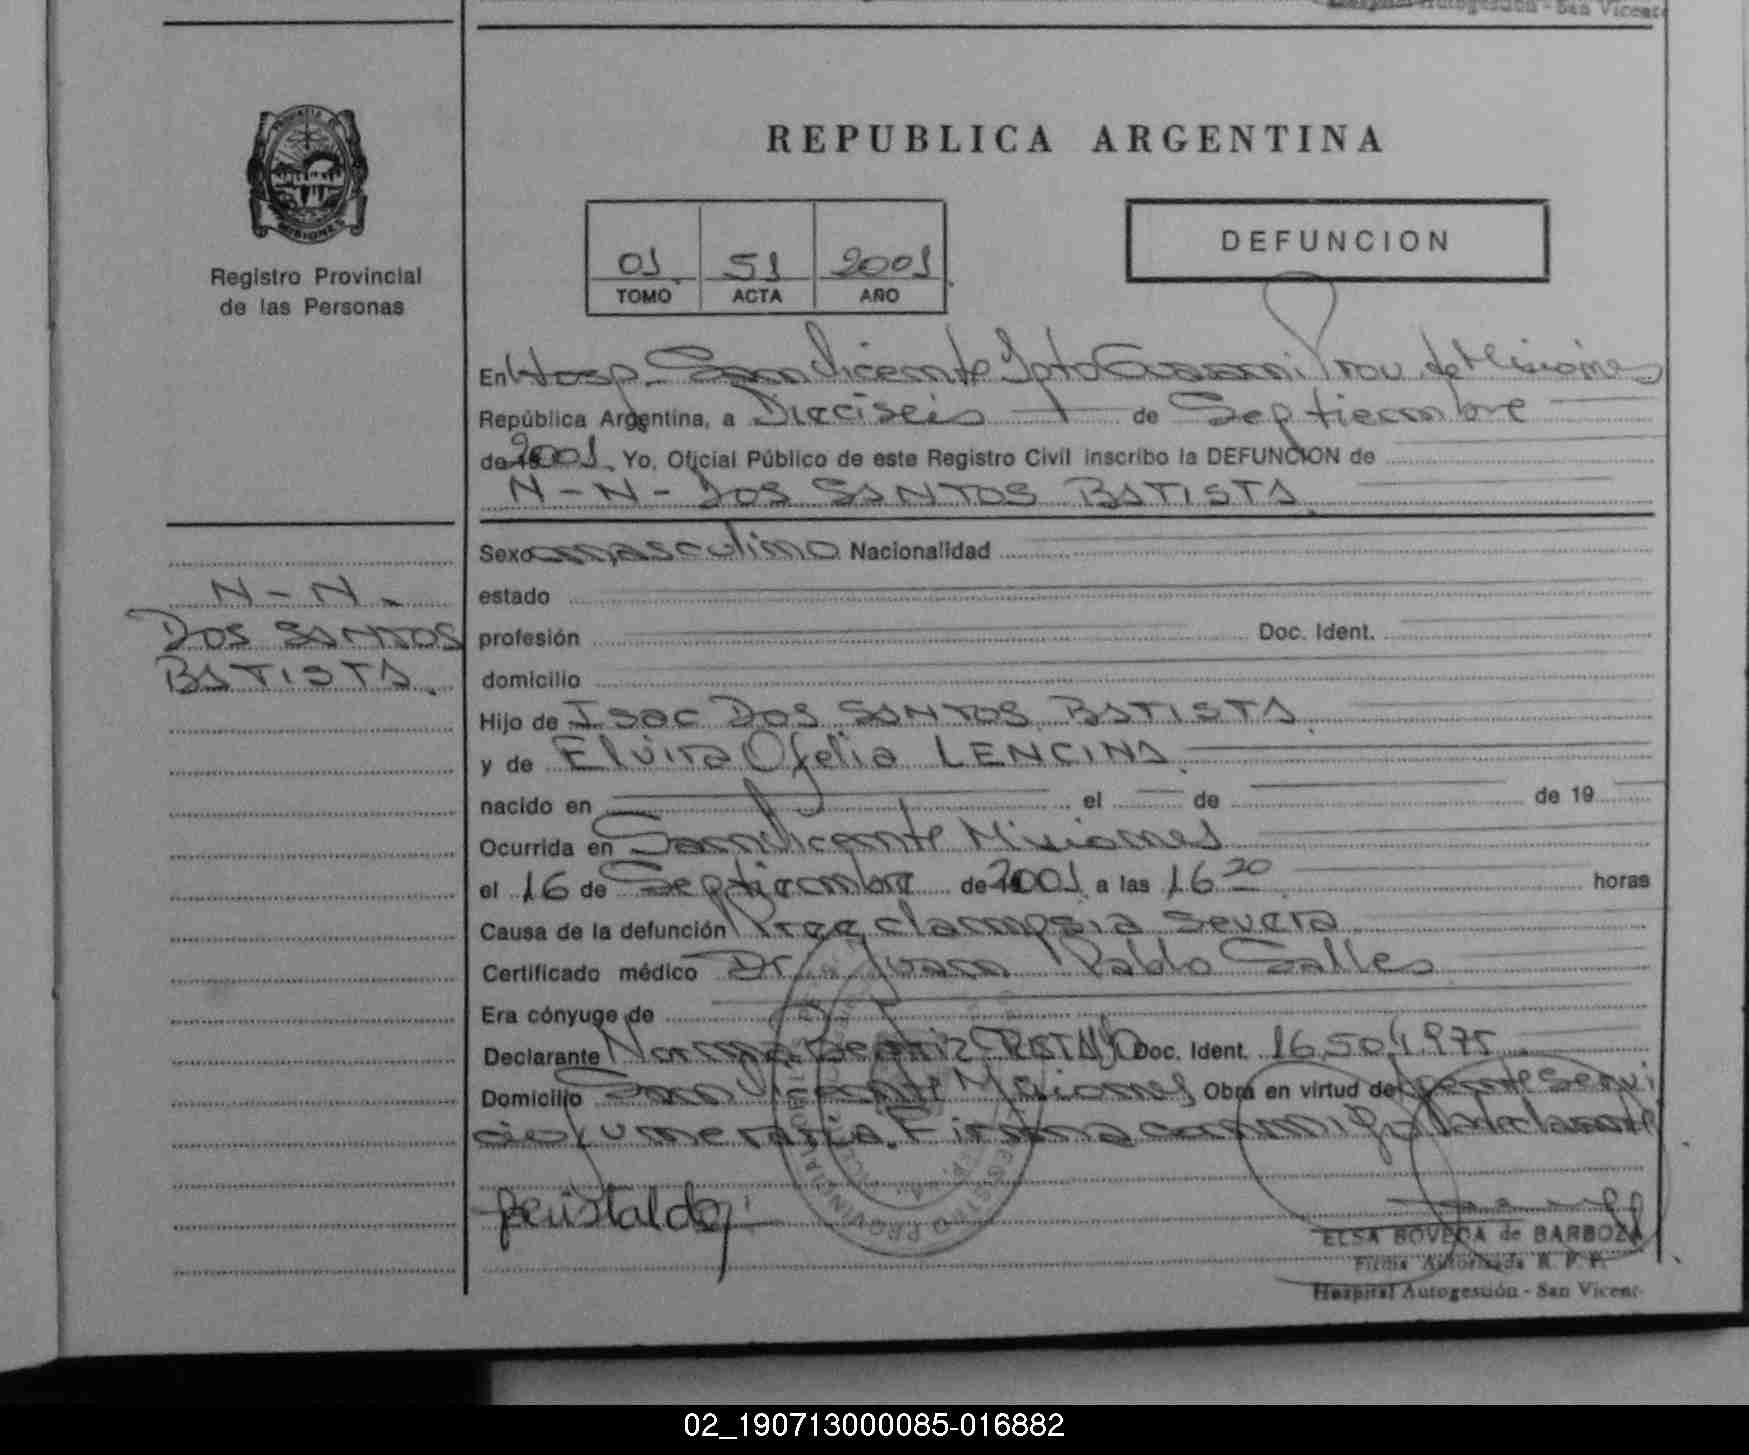 Hospital Autogestión - San Vicente
REPUBLICA ARGENTINA
PROVINCIA DE
MISIONES
Registro Provincial
de las Personas
01 51 2001
TOMO ACTA AÑO
DEFUNCION
En Hosp. San Vicente Dpto Guaraní Prov. de Misiones
República Argentina, a Dieciseis de Septiembre
de 2001. Yo, Oficial Público de este Registro Civil inscribo la DEFUNCION de
N-N- DOS SANTOS BATISTA.
N-N-
DOS SANTOS
BATISTA.
Sexo masculino Nacionalidad
estado
profesión Doc. Ident.
domicilio
Hijo de Isac DOS SANTOS BATISTA.
y de Elvira Ofelia LENCINA.
nacido en el de de 19
Ocurrida en San Vicente Misiones
el 16 de Septiembre de 2001 a las 16 20 horas
Causa de la defunción Preeclampsia severa
Certificado médico Dr. Juan Pablo Salles
Era cónyuge de
Declarante Norma Beatriz Doc. Ident. 16.504.975
Domicilio San Vicente Misiones Obra en virtud de
Firma conmigo la declarante
ELSA BOVEDA de BARBOZA
Firma Autorizada R. P. P.
Hospital Autogestión - San Vicent-
02_190713000085-016882